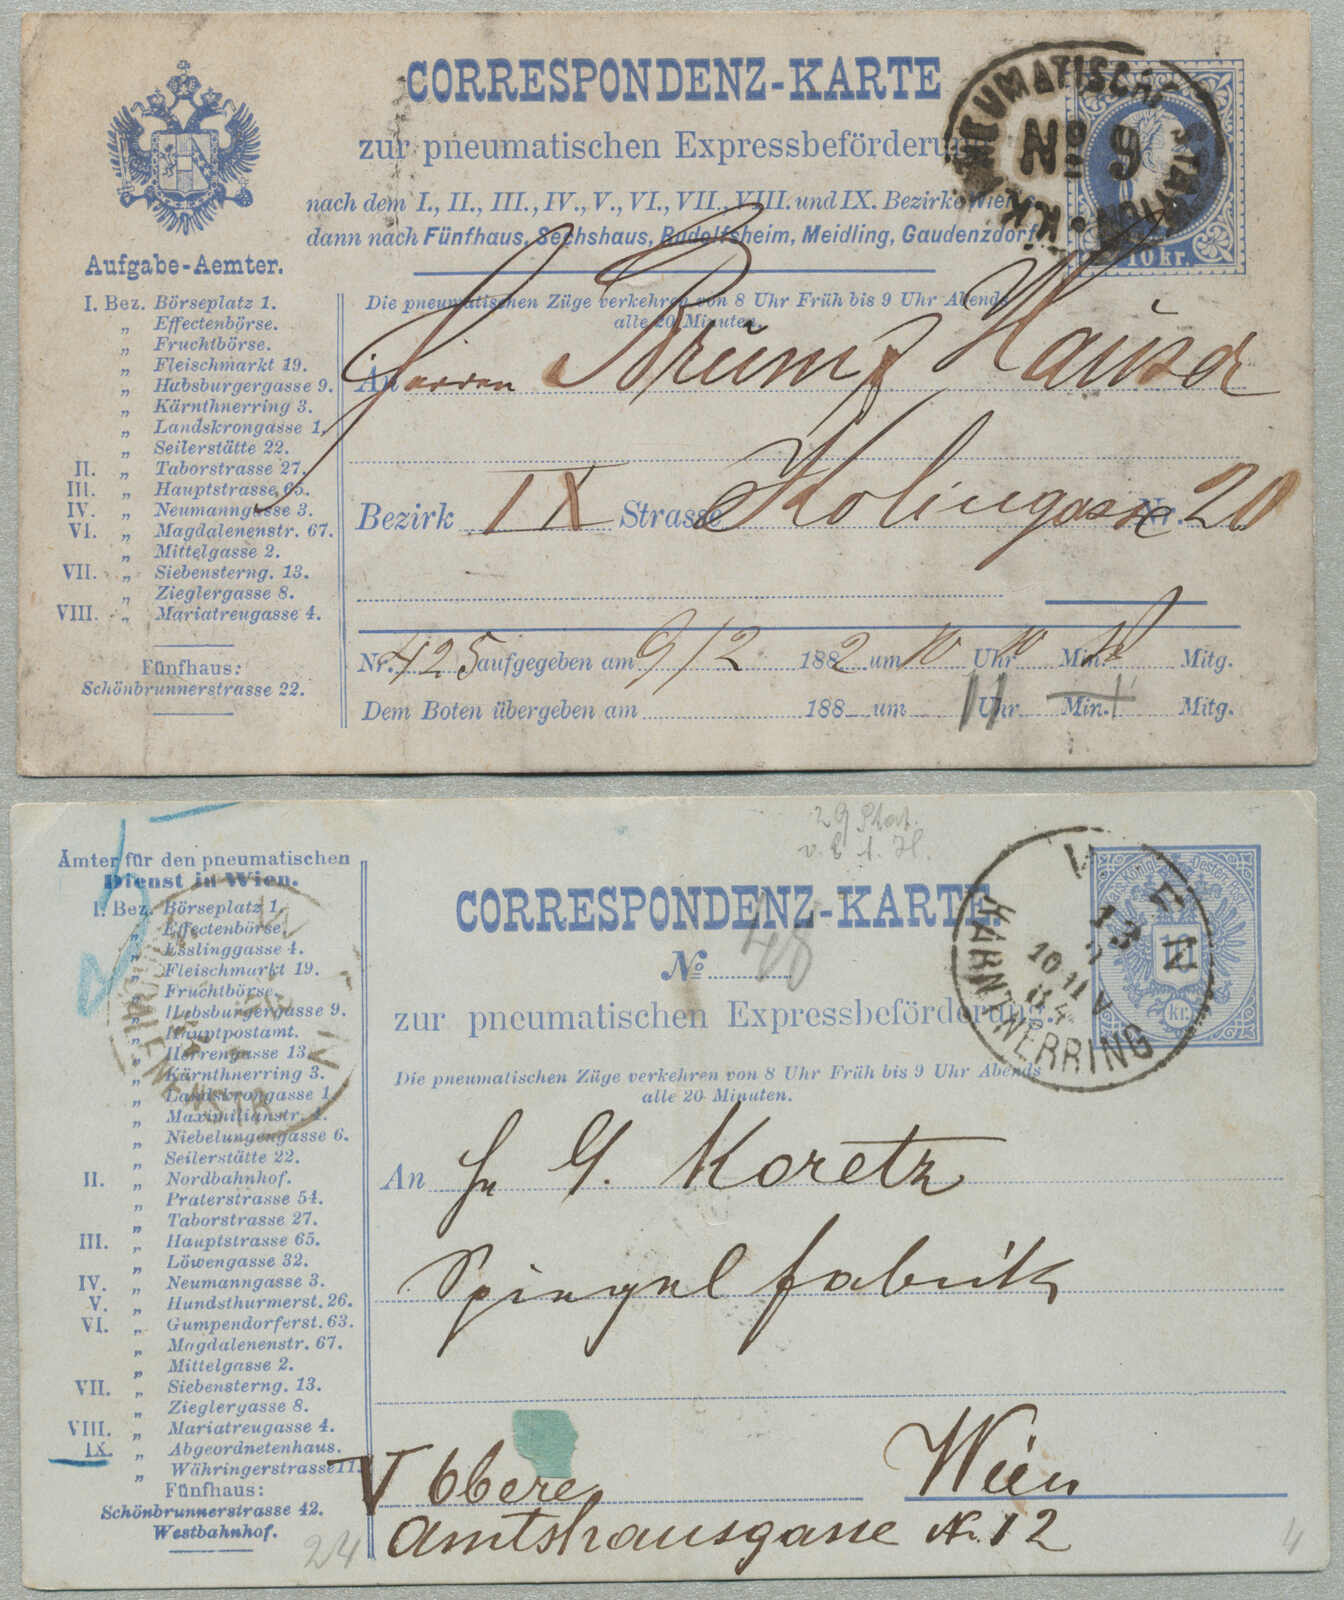 CORRESPONDENZ-KARTE
zur pneumatischen Expressbeförderung
nach dem I., II., III., IV., V., VI., VII., VIII. und IX. Bezirke Wien
dann nach Fünfhaus, Sechshaus, Rudolfsheim, Meidling, Gaudenzdorf
K.K. PNEUMATISCHE STATION
No 9
10 kr.
Aufgabe-Aemter.
I. Bez. Börseplatz 1.
„ Effectenbörse.
„ Fruchtbörse.
„ Fleischmarkt 19.
„ Habsburgergasse 9.
„ Kärnthnerring 3.
„ Landskrongasse 1.
„ Seilerstätte 22.
II. „ Taborstrasse 27.
III. „ Hauptstrasse 65.
IV. „ Neumanngasse 3.
VI. „ Magdalenenstr. 67.
„ Mittelgasse 2.
VII. „ Siebensterng. 13.
„ Zieglergasse 8.
VIII. „ Mariatreugasse 4.
Fünfhaus:
Schönbrunnerstrasse 22.
Die pneumatischen Züge verkehren von 8 Uhr Früh bis 9 Uhr Abends
alle 20 Minuten.
An Herren Hauser
Bezirk IX Strasse Kolingasse Nr. 20
Nr. 425 aufgegeben am 9/2 1882 um 10 Uhr 10 Min. Mitg.
Dem Boten übergeben am 188 um 11 Uhr Min. Mitg.
29 Stat.
Ämter für den pneumatischen
Dienst in Wien.
I. Bez. Börseplatz 1.
„ Effectenbörse.
„ Esslinggasse 4.
„ Fleischmarkt 19.
„ Fruchtbörse.
„ Habsburgergasse 9.
„ Hauptpostamt.
„ Herrengasse 13.
„ Kärnthnerring 3.
„ Landskrongasse 1.
„ Maximilianstr. 4.
„ Niebelungengasse 6.
„ Seilerstätte 22.
II. „ Nordbahnhof.
„ Praterstrasse 54.
„ Taborstrasse 27.
III. „ Hauptstrasse 65.
„ Löwengasse 32.
IV. „ Neumanngasse 3.
V. „ Hundsthurmerst. 26.
VI. „ Gumpendorferst. 63.
„ Magdalenenstr. 67.
„ Mittelgasse 2.
VII. „ Siebensterng. 13.
„ Zieglergasse 8.
VIII. „ Mariatreugasse 4.
IX. „ Abgeordnetenhaus.
„ Währingerstrasse 11.
Fünfhaus:
Schönbrunnerstrasse 42.
Westbahnhof.
24
CORRESPONDENZ-KARTE.
No 48
zur pneumatischen Expressbeförderung.
Die pneumatischen Züge verkehren von 8 Uhr Früh bis 9 Uhr Abends
alle 20 Minuten.
WIEN
KÄRNTHNERRING
10 kr.
An G. Koretz
Spiegelfabrik
Wien
V Obere
Amtshausgasse Nr. 12
4